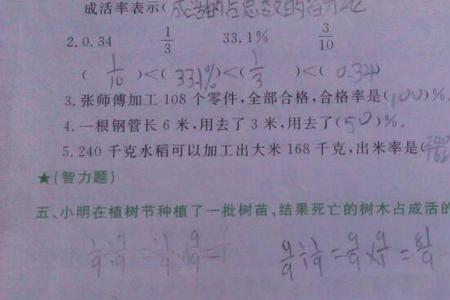 成活率表示(成活的占总数的百分比
2. 0.34 1/3 33.1% 3/10
( 1/10 )<( 33.1% )<( 1/3 )<( 0.34 )
3. 张师傅加工 108 个零件,全部合格,合格率是(100)%。
4. 一根钢管长 6 米,用去了 3 米,用去了(50)%。
5. 240 千克水稻可以加工出大米 168 千克,出米率是(
★(智力题)
五、小明在植树节种植了一批树苗,结果死亡的树木占成活的